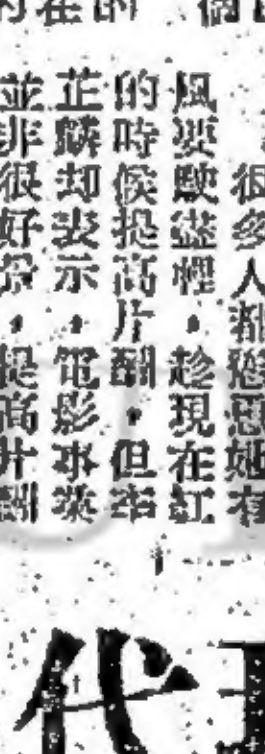 很多人都慫恿她有
風要駛盡，趁現在紅
的時候提高片酬，但李
芷麟却表示，電影事業
並非很好景，提高片酬
代